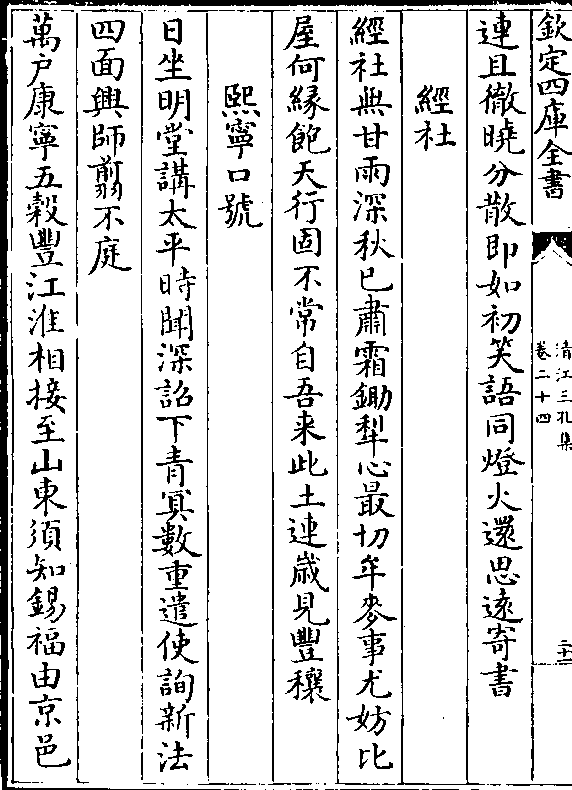 欽定四庫全書
清江三孔集
卷二十四
連且徹曉分散即如初笑語同燈火還思遠寄書
經社
經社無甘雨深秋已肅霜鋤犂心最切牟麥事尤妨比
屋何緣飽天行固不常自吾来此土連歲見豐穰
熙寧口號
日坐明堂講太平時聞深詔下青冥數重遣使詢新法
四面興師翦不庭
萬户康寧五穀豐江淮相接至山東須知錫福由京邑